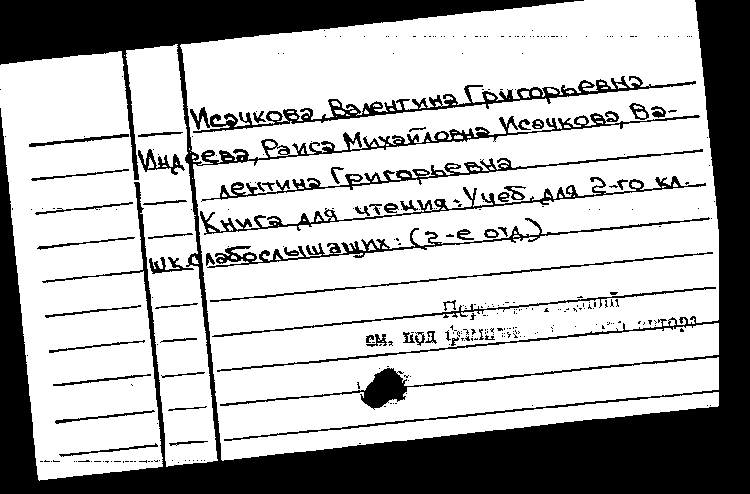 Исачкова, Валентина Григорьевна.
Индеева, Раиса Михайловна, Исачкова, Ва-
лентина Григорьевна
Книга для чтения: Учеб. для 2-го кл.
шк. слабослышащих: (2-е отд.).
см. под автора